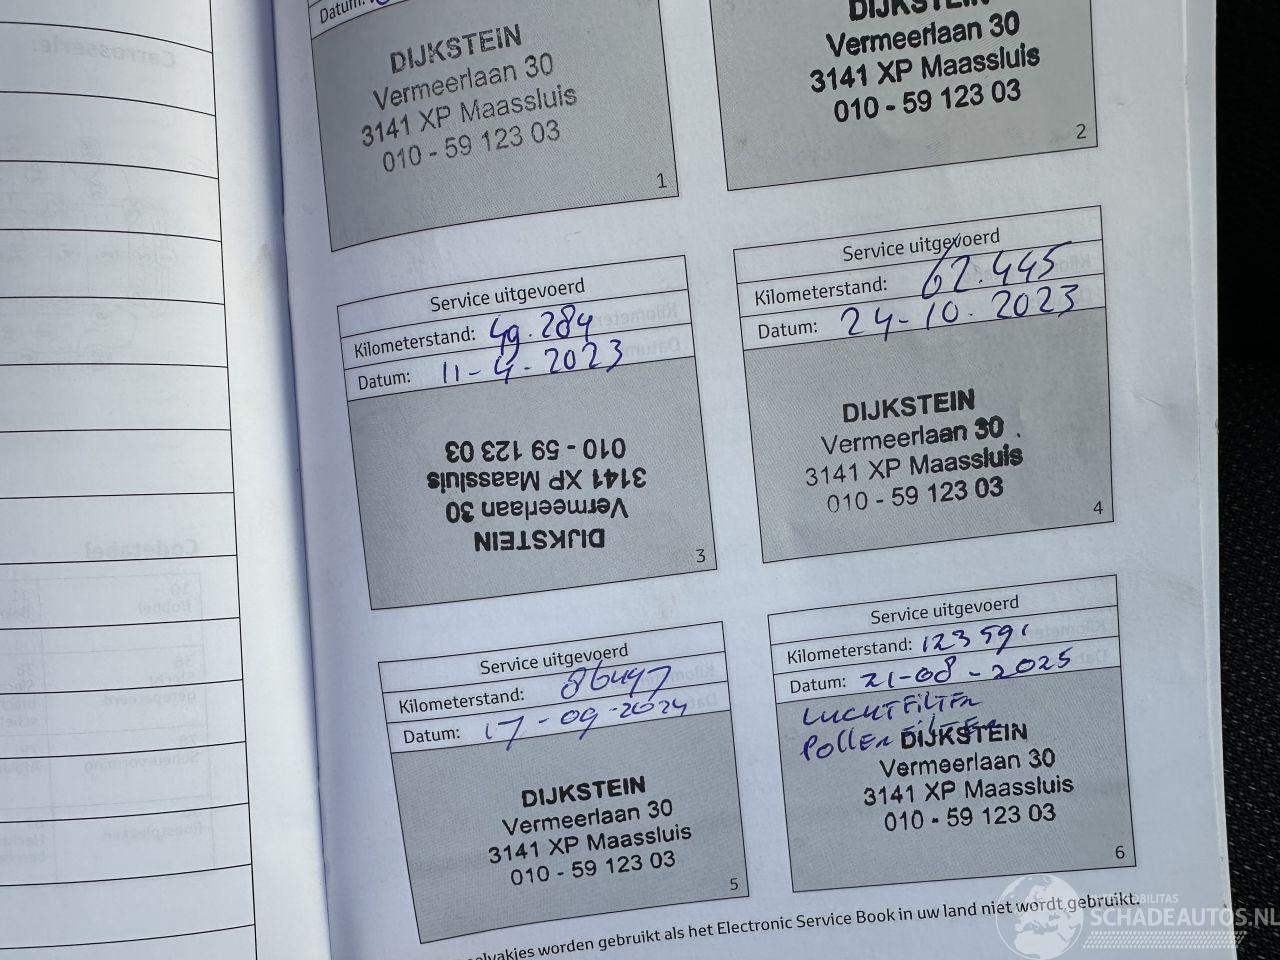 Carrosserie:
Datum:
DIJKSTEIN
Vermeerlaan 30
3141 XP Maassluis
010 - 59 123 03
1
DIJKSTEIN
Vermeerlaan 30
3141 XP Maassluis
010 - 59 123 03
2
Service uitgevoerd
Kilometerstand: 49.284
Datum: 11-4-2023
DIJKSTEIN
Vermeerlaan 30
3141 XP Maassluis
010 - 59 123 03
3
Service uitgevoerd
Kilometerstand: 62.445
Datum: 24-10.2023
DIJKSTEIN
Vermeerlaan 30
3141 XP Maassluis
010 - 59 123 03
4
Service uitgevoerd
Kilometerstand:
Datum: 17-09-2024
DIJKSTEIN
Vermeerlaan 30
3141 XP Maassluis
010 - 59 123 03
5
Service uitgevoerd
Kilometerstand: 123591
Datum: 21-08-2025
LUCHTFILTER
POLLENFILTER
DIJKSTEIN
Vermeerlaan 30
3141 XP Maassluis
010 - 59 123 03
6
worden gebruikt als het Electronic Service Book in uw land niet wordt gebruikt.
Codetabel
SCHADEAUTOS.NL